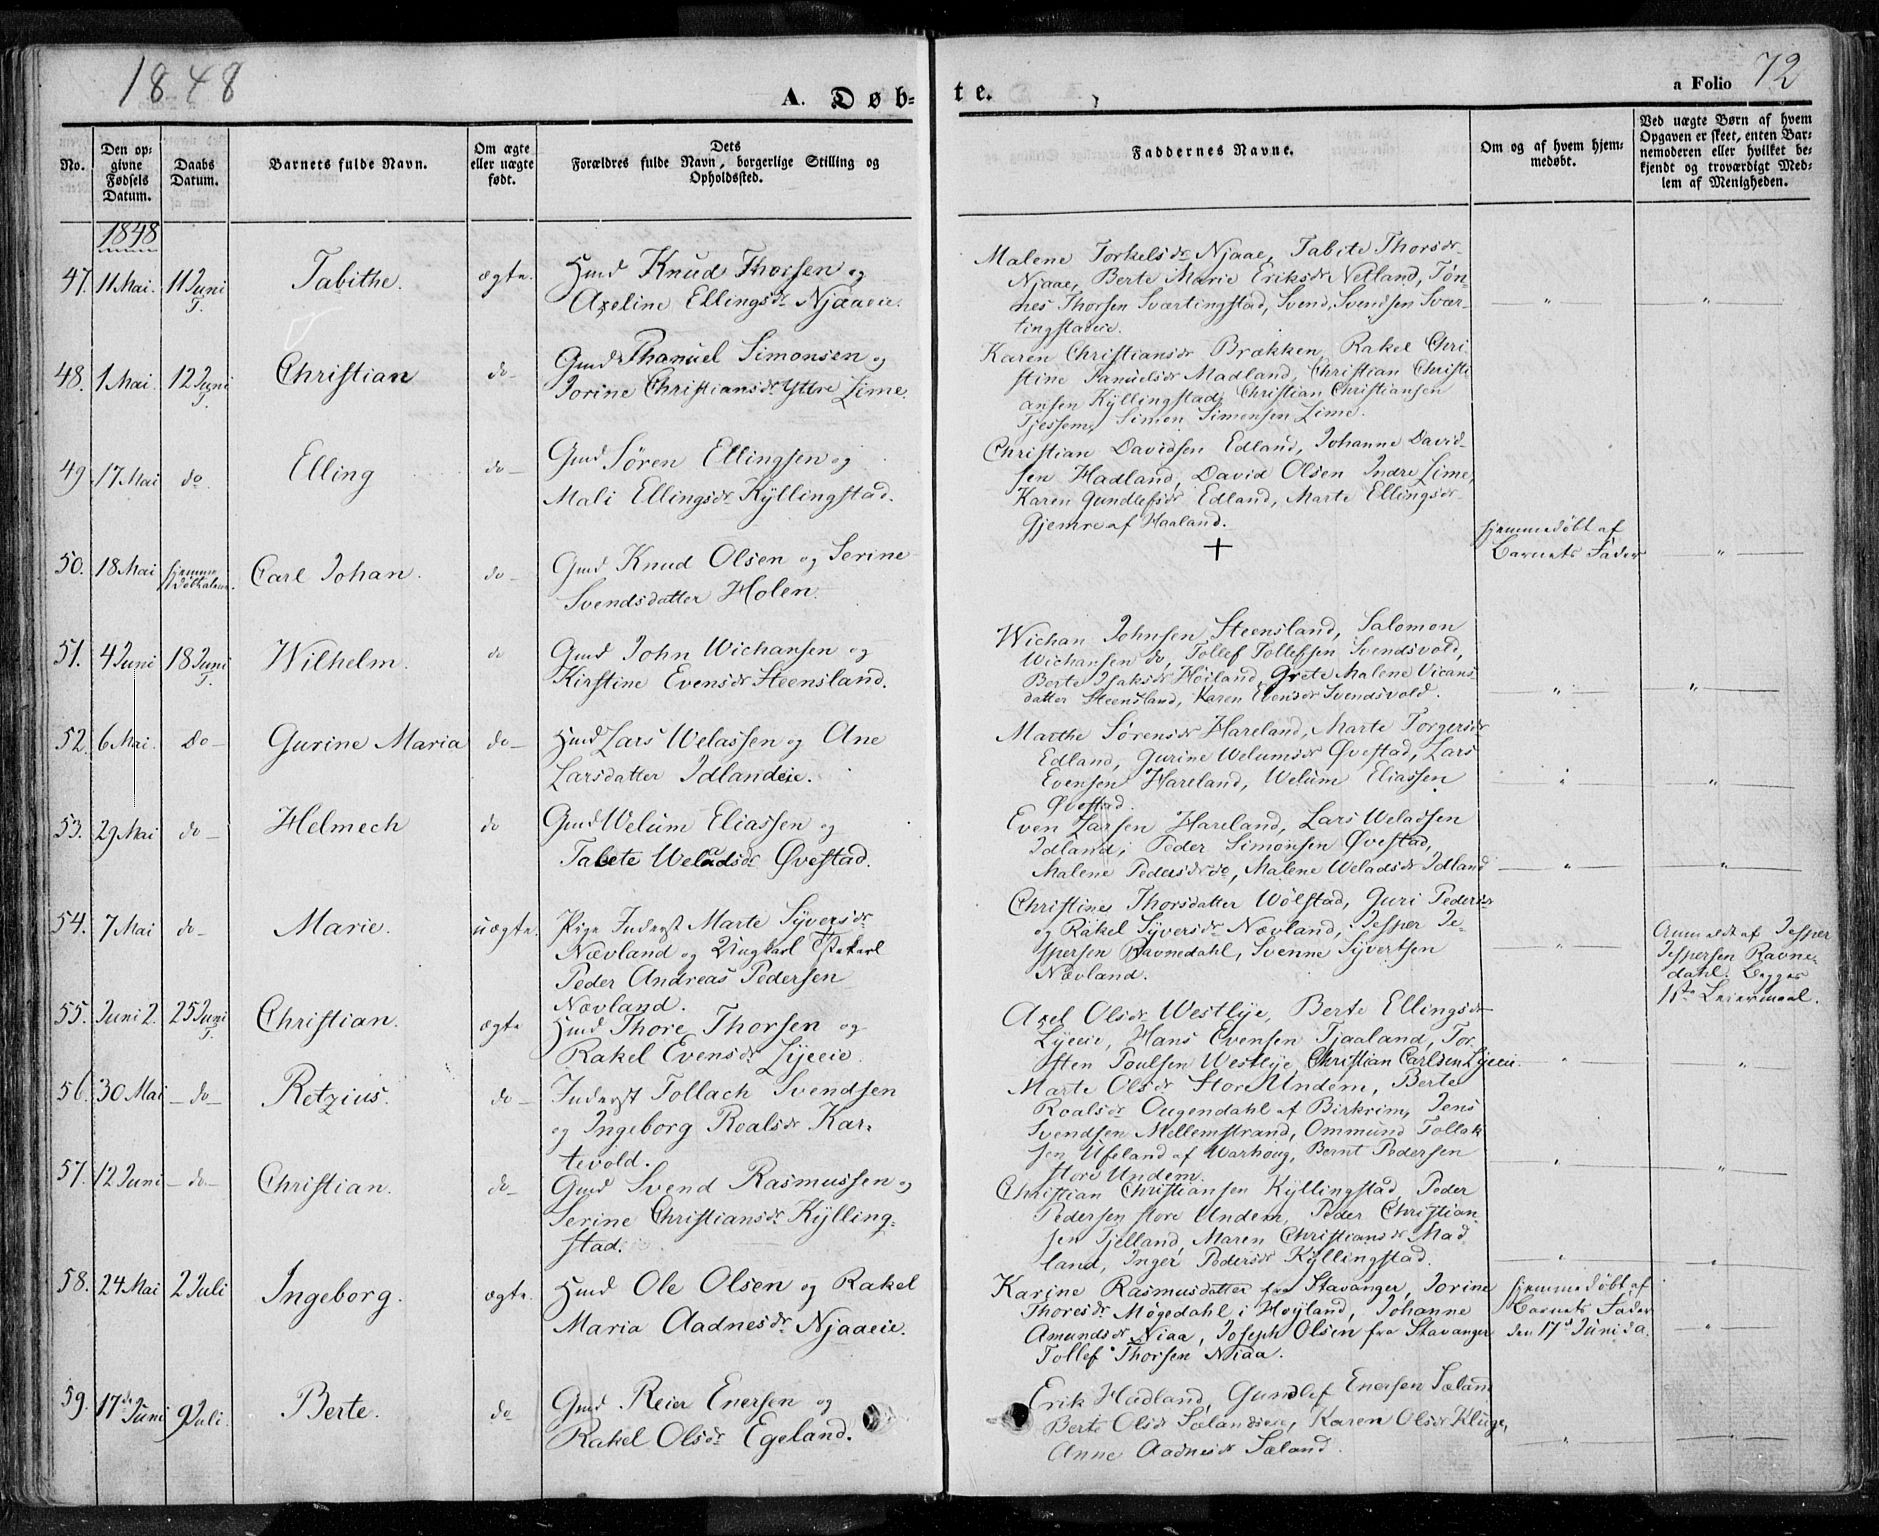 1848
A. Døb-
te.
a Folio 72
No.
Den op-
givne
Fødsels
Datum.
Daabs
Datum.
Barnets fulde Navn.
Om ægte
eller uægte
født.
Dets
Forældres fulde Navn, borgerlige Stilling og
Opholdssted.
Faddernes Navne.
Om og af hvem hjem-
medøbt.
Ved uægte Børn af hvem
Opgaven er skeet, enten Bar-
nemoderen eller hvilket be-
kjendt og troværdigt Med-
lem af Menigheden.
1848
47. 11 Mai. 11 Juni T. Tabithe. ægte. Hmd Knud Thorsen og
Axeline Ellingsdr Njaaeie.
Malene Torkelsdr Njaae, Tabite Thorsdr
Njaae, Berte Marie Eriksdr Netland, Tøn-
nes Thorsen Sværtingstad, Svend Svendsen Svær-
tingstadeie.
48. 1 Mai. 12 Juni T. Christian do- Gmd Phanuel Simonsen og
Jorine Christiansdr Yttre Lime.
Karen Christiansdr Brækken, Rakel Chri
stine Fanuelsdr Madland, Christian Christi
ansen Kyllingstad, Christian Christiansen
Tjessem, Simon Simonsen Lime.
49. 17 Mai do Elling do- Gmd Søren Ellingsen og
Mali Ellingsdr Kyllingstad.
Christian Davidsen Edland, Johanne David-
sen Hadland, David Olsen Indre Lime,
Karen Gundlefsdr Edland, Marte Ellingsdr
Gjemre af Haaland.
50. 18 Mai hjemme
døbt alene. Carl Johan. do- Gmd Knud Olsen og Serine
Svendsdatter Holen.
+
hjemmedøbt af
Barnets Fader
51. 4 Juni 18 Juni T. Wilhelm. do Gmd John Wichansen og
Kirstine Evensdr Steensland.
Wichan Johnsen Steensland, Salomon
Wichansen do, Tollef Tollefsen Svendsvold,
Berte Isaksdr Høiland, Grete Malene Vicans
datter Steensland, Karen Evensdr Svendsvold.
52 6 Mai. Do- Gurine Maria do- Hmd Lars Welassen og Ane
Larsdatter Idlandeie.
Marthe Sørensdr Hareland, Marte Torgersdr
Edland, Gurine Welumsdr Øvestad, Lars
Evensen Hareland, Welum Eliassen
Øvestad.
53. 29 Mai do- Helmech do Gmd Welum Eliassen og
Tabete Weladsdr Øvestad.
Even Larsen Hareland, Lars Weladsen
Idland, Peder Simonsen Øvestad,
Malene Pedersdr do, Malene Weladsdr Idland
54. 7 Mai do- Marie. uægte. Pige Inderst Marte Syversdr
Nævland og Ungkarl
Peder Andreas Pedersen
Nævland.
Christine Thorsdatter Wølstad, Guri Pedersdr
og Rakel Syversdr Nævland, Jesper Je-
spersen Ravnedahl, Svenne Syvertsen
Nævland.
Anmeldt af Jesper
Jespersen Ravne-
dahl. Begges
1ste Leiermaal.
55. Juni 2. 25 Juni T. Christian. ægte Hmd Thore Thorsen og
Rakel Evensdr Lyeeie.
Axel Olsdr Westlye, Berte Ellingsdr
Lyeeie, Hans Evensen Tjaaland, Tor
sten Poulsen Westlye, Christian Carlsen Lyeeie.
56. 30 Mai do- Retzius. do- Inderst Tollach Svendsen
og Ingeborg Roalsdr Kar-
tevold.
Marte Olsdr Store Undem, Berte
Roalsdr Ougendahl af Birkrim, Jens
Svendsen Mellemstrand, Ommund Tollak
sen Ufeland af Warhoug, Bernt Pedersen
store Undem.
57. 12 Juni do- Christian. do- Gmd Svend Rasmussen og
Serine Christiansdr Kylling-
stad.
Christian Christiansen Kyllingstad, Peder
Pedersen store Undem, Peder Christian-
sen Tjelland, Maren Christiansdr Mad
land, Inger Pedersdr Kyllingstad.
58. 24 Mai 2 Juli Ingeborg. ægte. Hmd Ole Olsen og Rakel
Maria Aadnesdr Njaaeie.
Karine Rasmusdatter fra Stavanger, Jorine
Thoresdr Møgedahl i Høyland, Johanne
Amundsdr Niaa, Joseph Olsen fra Stavanger
Tollef Thorsen Niaa.
hjemmedøbt af
Barnets Fader
den 17d Juni d.a.
59. 17de Juni 9 Juli. Berte. do Gmd Reier Enersen og
Rakel Olsdr Egeland.
Erik Hadland, Gundlef Enersen Sæland
Berte Olsdr Sælandseie, Karen Olsdr Kluge,
Anne Aadnesdr Sæland.